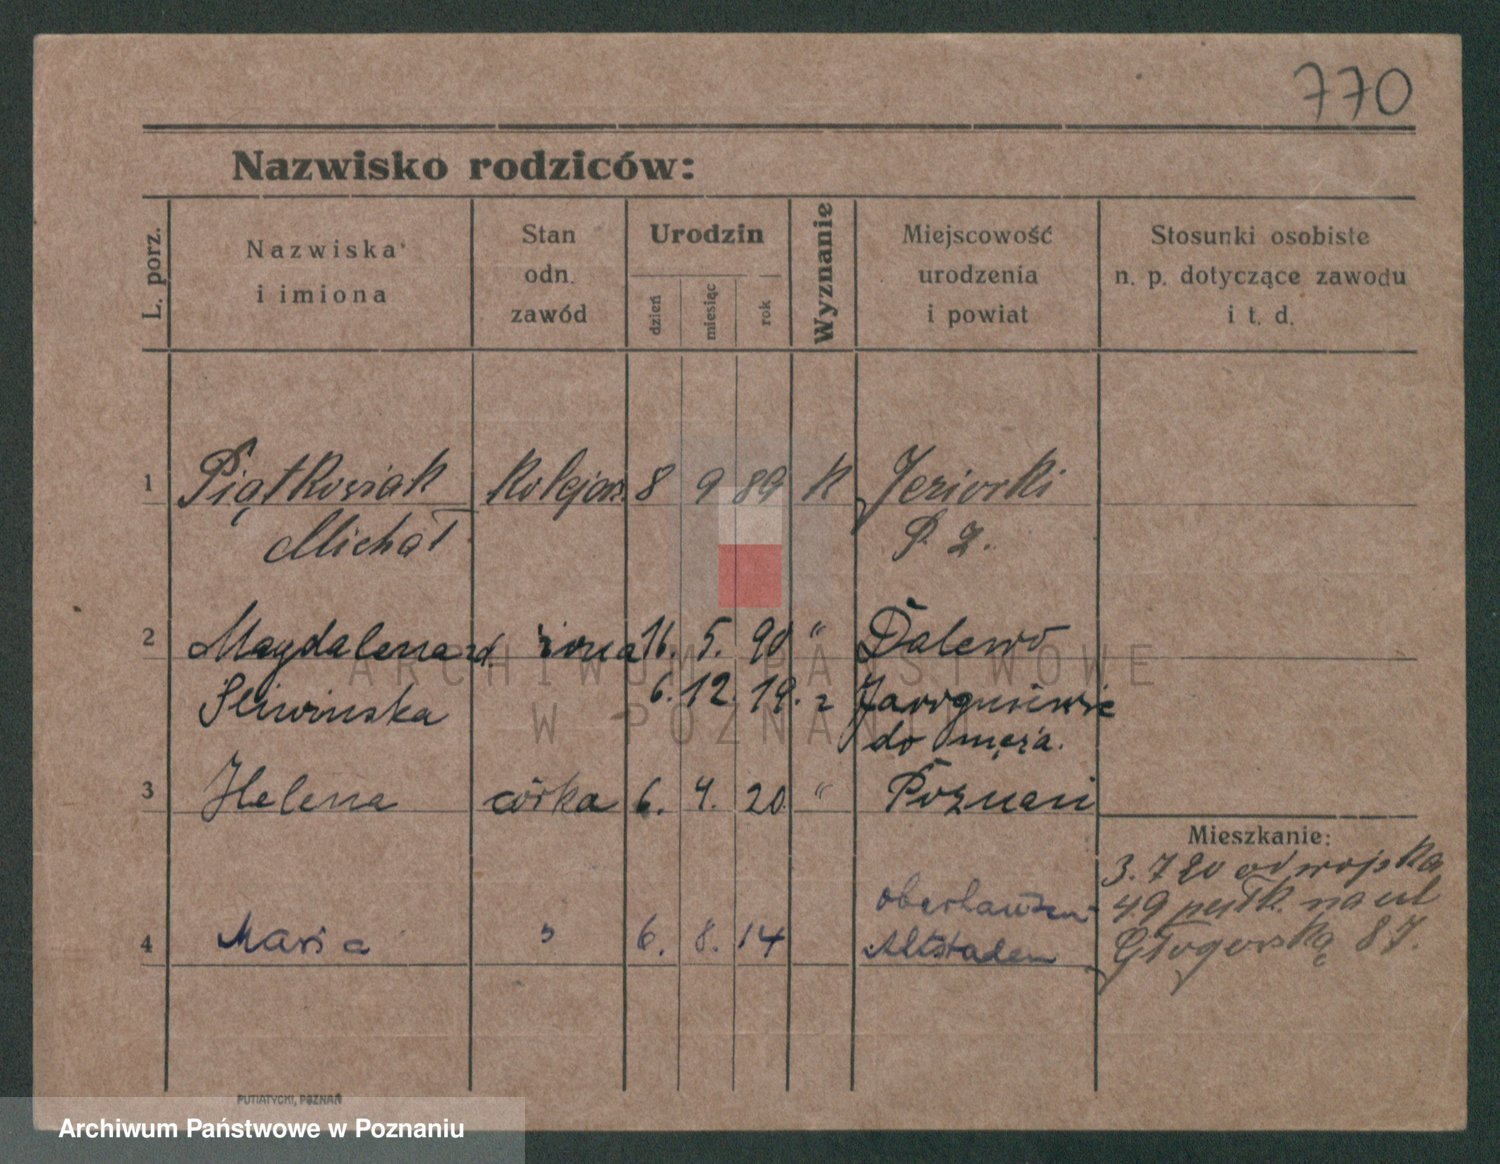 770
Nazwisko rodziców:
L. porz.
Nazwiska
i imiona
Stan
odn.
zawód
Urodzin
dzień
miesiąc
rok
Wyznanie
Miejscowość
urodzenia
i powiat
Stosunki osobiste
n. p. dotyczące zawodu
i t. d.
1 Piątkowiak Kolejarz 8 9 89 K Jeziorki
Michał P. Z.
2 Magdalena zd. żona 16. 5. 90 " Dalewo
Śliwińska 6. 12. 19. z Jarogniewic
do męża.
3 Helena córka 6. 4. 20 " Poznań
Mieszkanie:
3. 7 20 od wojska
49 pułk. na ul
Głogowską 87.
Oberhausen
4 Maria " 6. 8. 14 Altstaden
ARCHIWUM PAŃSTWOWE
W POZNANIU
PUTIATYCKI, POZNAŃ
Archiwum Państwowe w Poznaniu